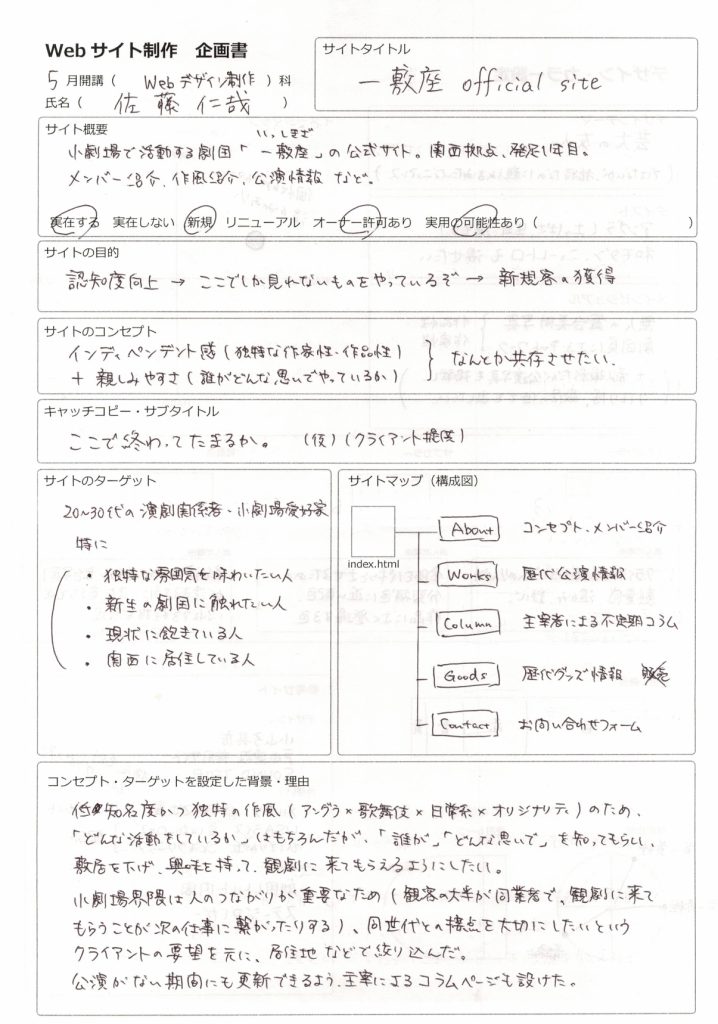 Webサイト制作　企画書
サイトタイトル
一敷座 official site
5月開講（ Webデザイン制作 ）科
氏名（ 佐藤仁哉 ）
サイト概要
いっしきざ
小劇場で活動する劇団「一敷座」の公式サイト。関西拠点、発足1年目。
メンバー紹介、作風紹介、公演情報 など。
実在する　実在しない　新規　リニューアル　オーナー許可あり　実用の可能性あり（　）
サイトの目的
認知度向上 → ここでしか見れないものをやっているぞ → 新規客の獲得
サイトのコンセプト
インディペンデント感（独特な作家性・作品性）
＋ 親しみやすさ（誰がどんな思いでやっているか）
なんとか共存させたい。
キャッチコピー・サブタイトル
ここで終わってたまるか。（仮）（クライアント提案）
サイトのターゲット
20〜30代の演劇関係者・小劇場愛好家
特に
・独特な雰囲気を味わいたい人
・新生の劇団に触れたい人
・現状に飽きている人
・関西に居住している人
サイトマップ（構成図）
index.html
About コンセプト、メンバー紹介
Works 歴代公演情報
Column 主宰者による不定期コラム
Goods 歴代グッズ情報
Contact お問い合わせフォーム
コンセプト・ターゲットを設定した背景・理由
低知名度かつ独特の作風（アングラ×歌舞伎×日常系×オリジナリティ）のため、
「どんな活動をしているか」はもちろんだが、「誰が」「どんな思いで」を知ってもらい、
敷居を下げ、興味を持って、観劇に来てもらえるようにしたい。
小劇場界隈は人のつながりが重要なため（観客の大半が同業者で、観劇に来て
もらうことが次の仕事に繋がったりする）、同世代との接点を大切にしたいという
クライアントの要望を元に、居住地などで絞り込んだ。
公演がない期間にも更新できるよう、主宰によるコラムページも設けた。